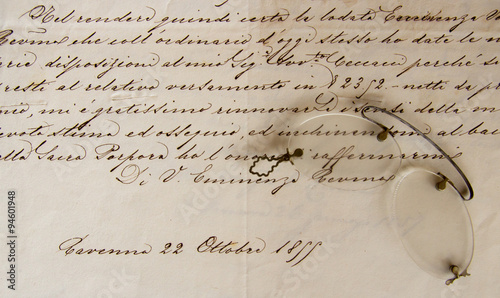 Nel rendere quindi certa la lodata Eminenza V
Rev.ma che coll'ordinario d'oggi stesso ho date le n
disposizioni al mio Sig. Avv.to Ceccacci perchè so
resti al relativo versamento in £ 2352.- netti da p
mi è gratissimo rinnovare i sensi della m
evota stima ed ossequio, ed inchinandomi al ba
ella Sacra Porpora ho l'onore raffermarmi
Di V. Eminenza Rev.ma
Ravenna 22 Ottobre 1877
Adobe Stock
94601948